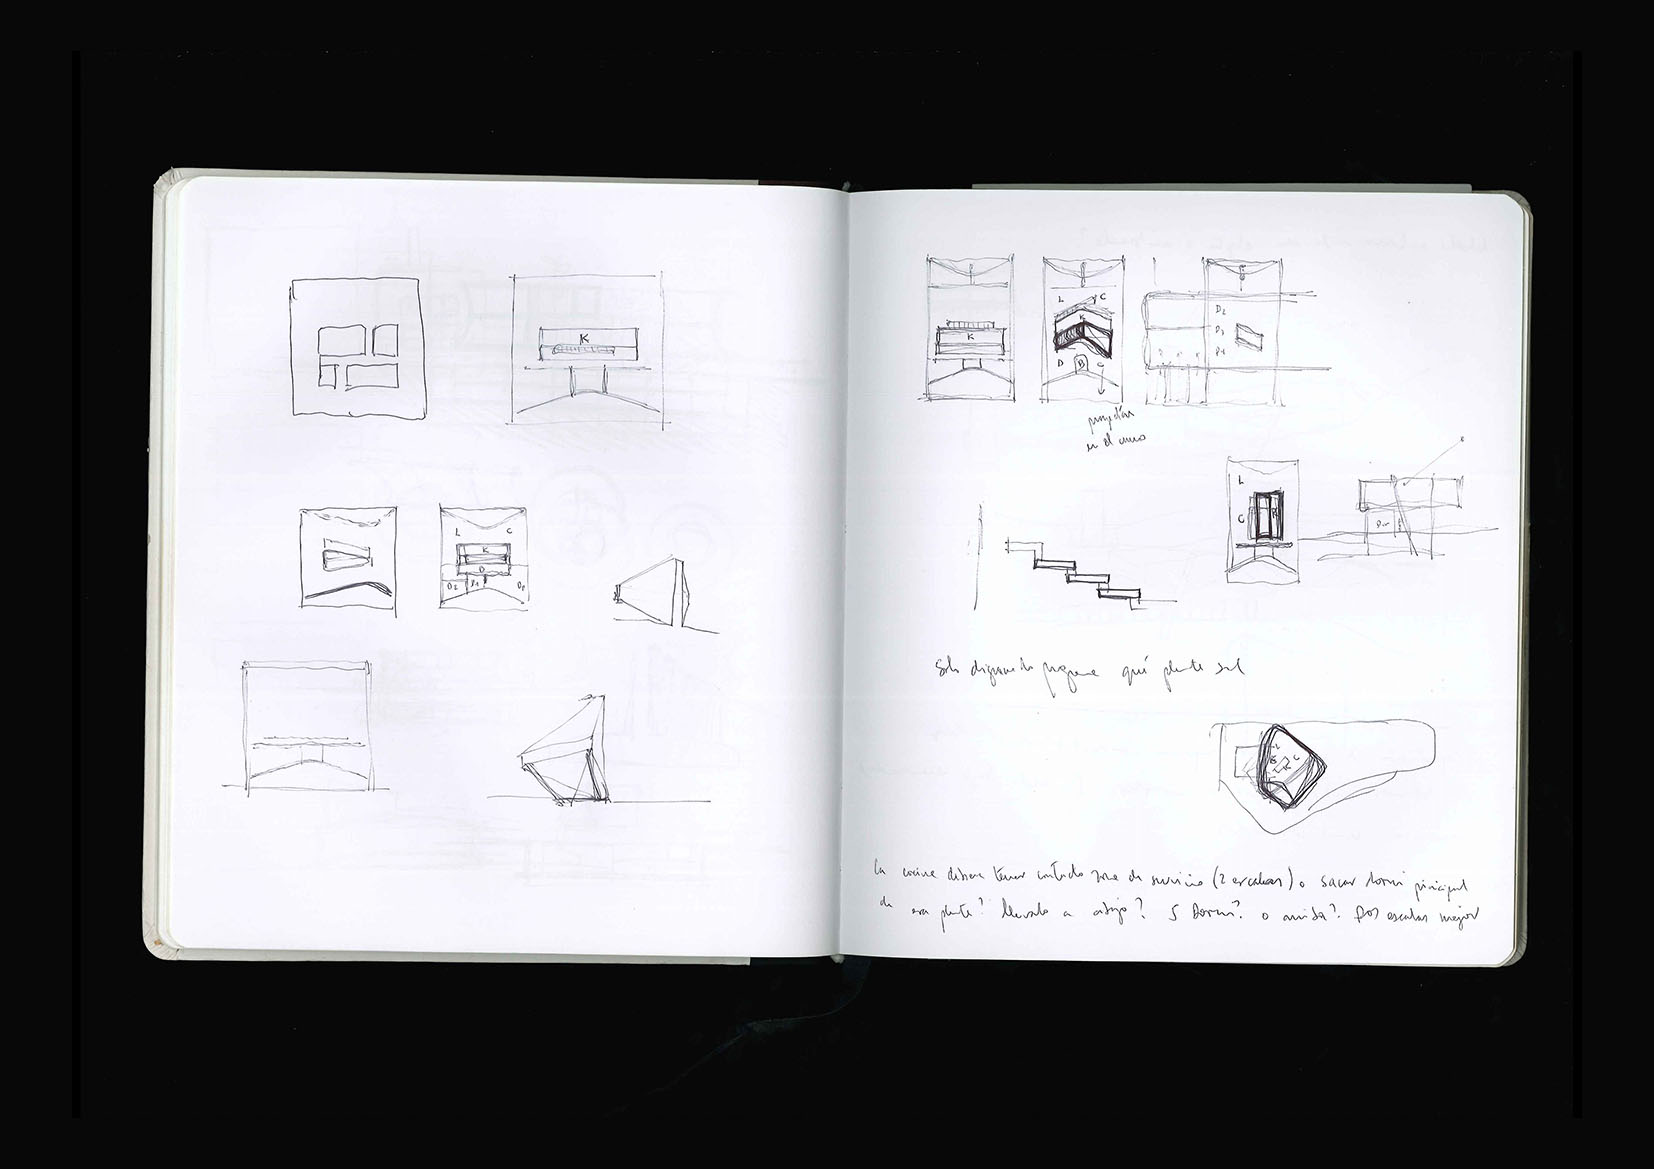 K
L C
K
D
D2 D1 D2
K
L C
K
D B C
en el muro
D2
D3
D1
L
C
Dor
qué planta sol
L
K C
La cocina debiera tener contacto zona de servicio (2 escaleras) o sacar dormi principal
de esa planta? llevarlo a abajo? 5 Dormi? o arriba? Dos escaleras mejor